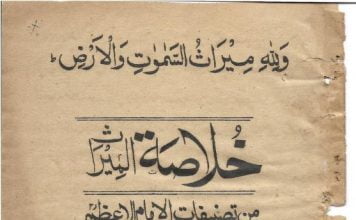 وَلِلّٰهِ مِيْرَاثُ السَّمٰوٰتِ وَالْاَرْضِ ؕ
خُلَاصَةُ الْمِيْرَاثِ
من تصنيفات الامام الاعظم